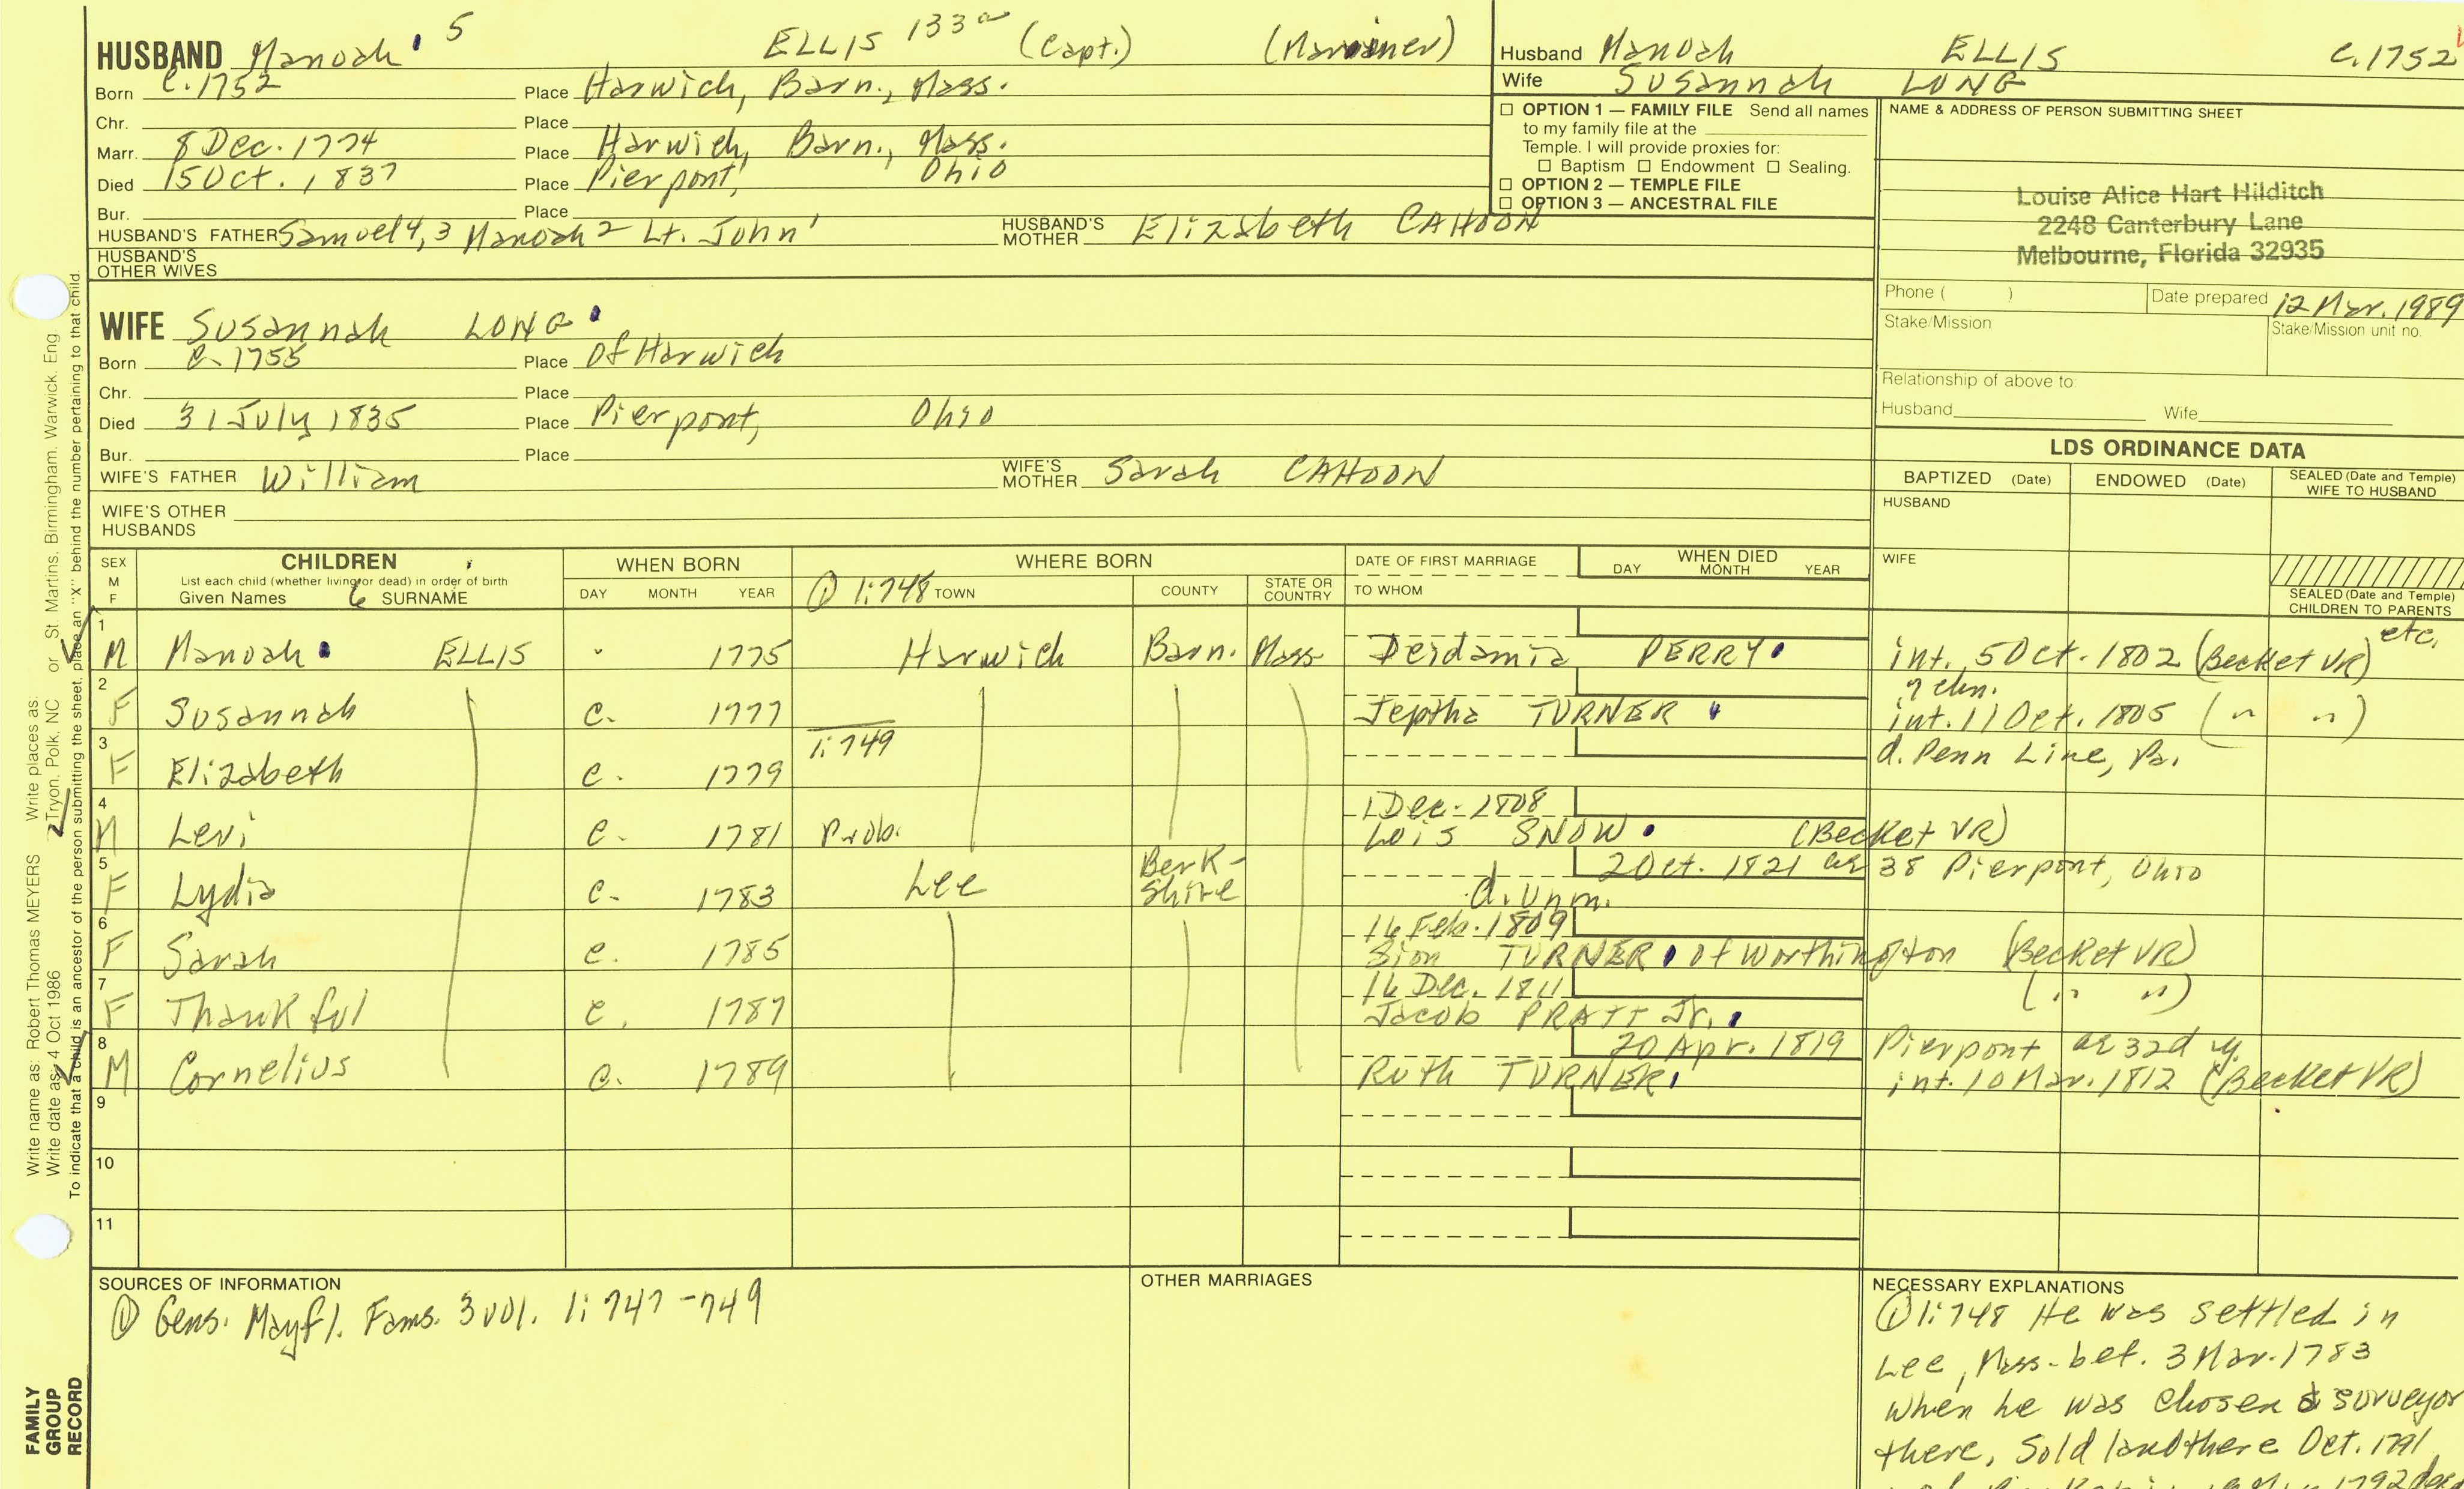 HUSBAND Manoah 5 ELLIS 133 (Capt.) (Mariner)
Born c.1752 Place Harwich, Barn., Mass.
Chr. Place
Marr. 8 Dec. 1774 Place Harwich, Barn., Mass.
Died 15 Oct. 1837 Place Pierpont, Ohio
Bur. Place
HUSBAND'S FATHER Samuel 4, 3 Manoah 2 Lt. John 1 HUSBAND'S MOTHER Elizabeth CAHOON
HUSBAND'S OTHER WIVES
Husband Manoah ELLIS c.1752
Wife Susannah LONG
☐ OPTION 1 — FAMILY FILE Send all names
to my family file at the
Temple. I will provide proxies for:
☐ Baptism ☐ Endowment ☐ Sealing.
☐ OPTION 2 — TEMPLE FILE
☐ OPTION 3 — ANCESTRAL FILE
NAME & ADDRESS OF PERSON SUBMITTING SHEET
Louise Alice Hart Hilditch
2248 Canterbury Lane
Melbourne, Florida 32935
Phone ( ) Date prepared 12 Mar. 1989
Stake/Mission Stake/Mission unit no.
Relationship of above to:
Husband Wife
WIFE Susannah LONG
Born c.1755 Place Of Harwich
Chr. Place
Died 31 July 1835 Place Pierpont, Ohio
Bur. Place
WIFE'S FATHER William WIFE'S MOTHER Sarah CAHOON
WIFE'S OTHER
HUSBANDS
LDS ORDINANCE DATA
BAPTIZED (Date) ENDOWED (Date) SEALED (Date and Temple) WIFE TO HUSBAND
HUSBAND
WIFE
SEALED (Date and Temple)
CHILDREN TO PARENTS
SEX M F
CHILDREN
List each child (whether living or dead) in order of birth
Given Names 6 SURNAME
WHEN BORN
DAY MONTH YEAR
WHERE BORN
① 1:748 TOWN COUNTY STATE OR COUNTRY
DATE OF FIRST MARRIAGE
TO WHOM
WHEN DIED
DAY MONTH YEAR
1 M Manoah ELLIS 1775 Harwich Barn. Mass Deidamia PERRY int. 5 Oct. 1802 (Becket VR) etc.
7 chn.
2 F Susannah c. 1777 Jeptha TURNER int. 11 Oct. 1805 (" ")
3 F Elizabeth c. 1779 1:749 d. Penn Line, Pa.
4 M Levi c. 1781 Prob. 1 Dec. 1808 Lois SNOW (Becket VR)
5 F Lydia c. 1783 Lee Berk-shire d. unm. 2 Oct. 1821 ae 38 Pierpont, Ohio
6 F Sarah c. 1785 16 Feb. 1809 Sion TURNER of Worthington (Becket VR)
7 F Thankful c. 1787 16 Dec. 1811 Jacob PRATT Jr. (" ")
8 M Cornelius c. 1789 Ruth TURNER 20 Apr. 1819 Pierpont ae 32d y.
int. 10 Mar. 1812 (Becket VR)
9
10
11
SOURCES OF INFORMATION
① Gens. Mayfl. Fams. 3 vol. 1:747-749
OTHER MARRIAGES
NECESSARY EXPLANATIONS
① 1:748 He was settled in
Lee, Mass. bef. 3 Mar. 1783
when he was chosen a surveyor
there. Sold land there Oct. 1791
1792
Write name as: Robert Thomas MEYERS Write places as: St. Martins, Birmingham, Warwick, Eng
Write date as: 4 Oct 1986 Tryon, Polk, NC or
To indicate that a child is an ancestor of the person submitting the sheet, place an "X" behind the number pertaining to that child.
FAMILY
GROUP
RECORD